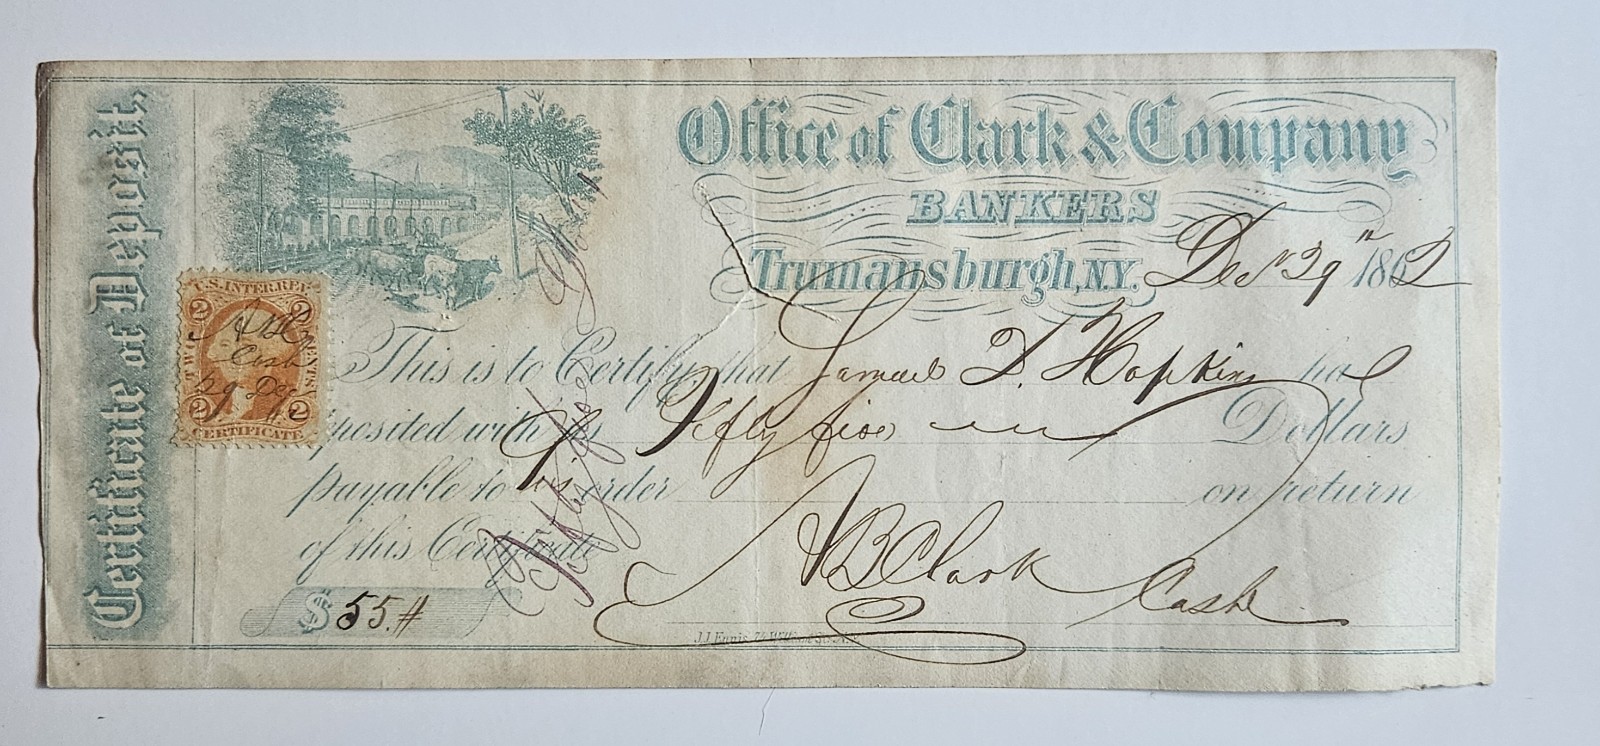 Certificate of Deposit,
Office of Clark & Company
BANKERS
Trumansburgh, N.Y. Dec 29th 1862
U.S. INTER. REV.
2 2
TWO CENTS
Cash
29 Dec
2 2
CERTIFICATE
This is to Certify that Samuel D. Hopkins has
posited with us Fifty five Dollars
payable to his order on return
of this Certificate
J B Clark Cash
$ 55.#
J.J. Ennis, 74 William St. N.Y.